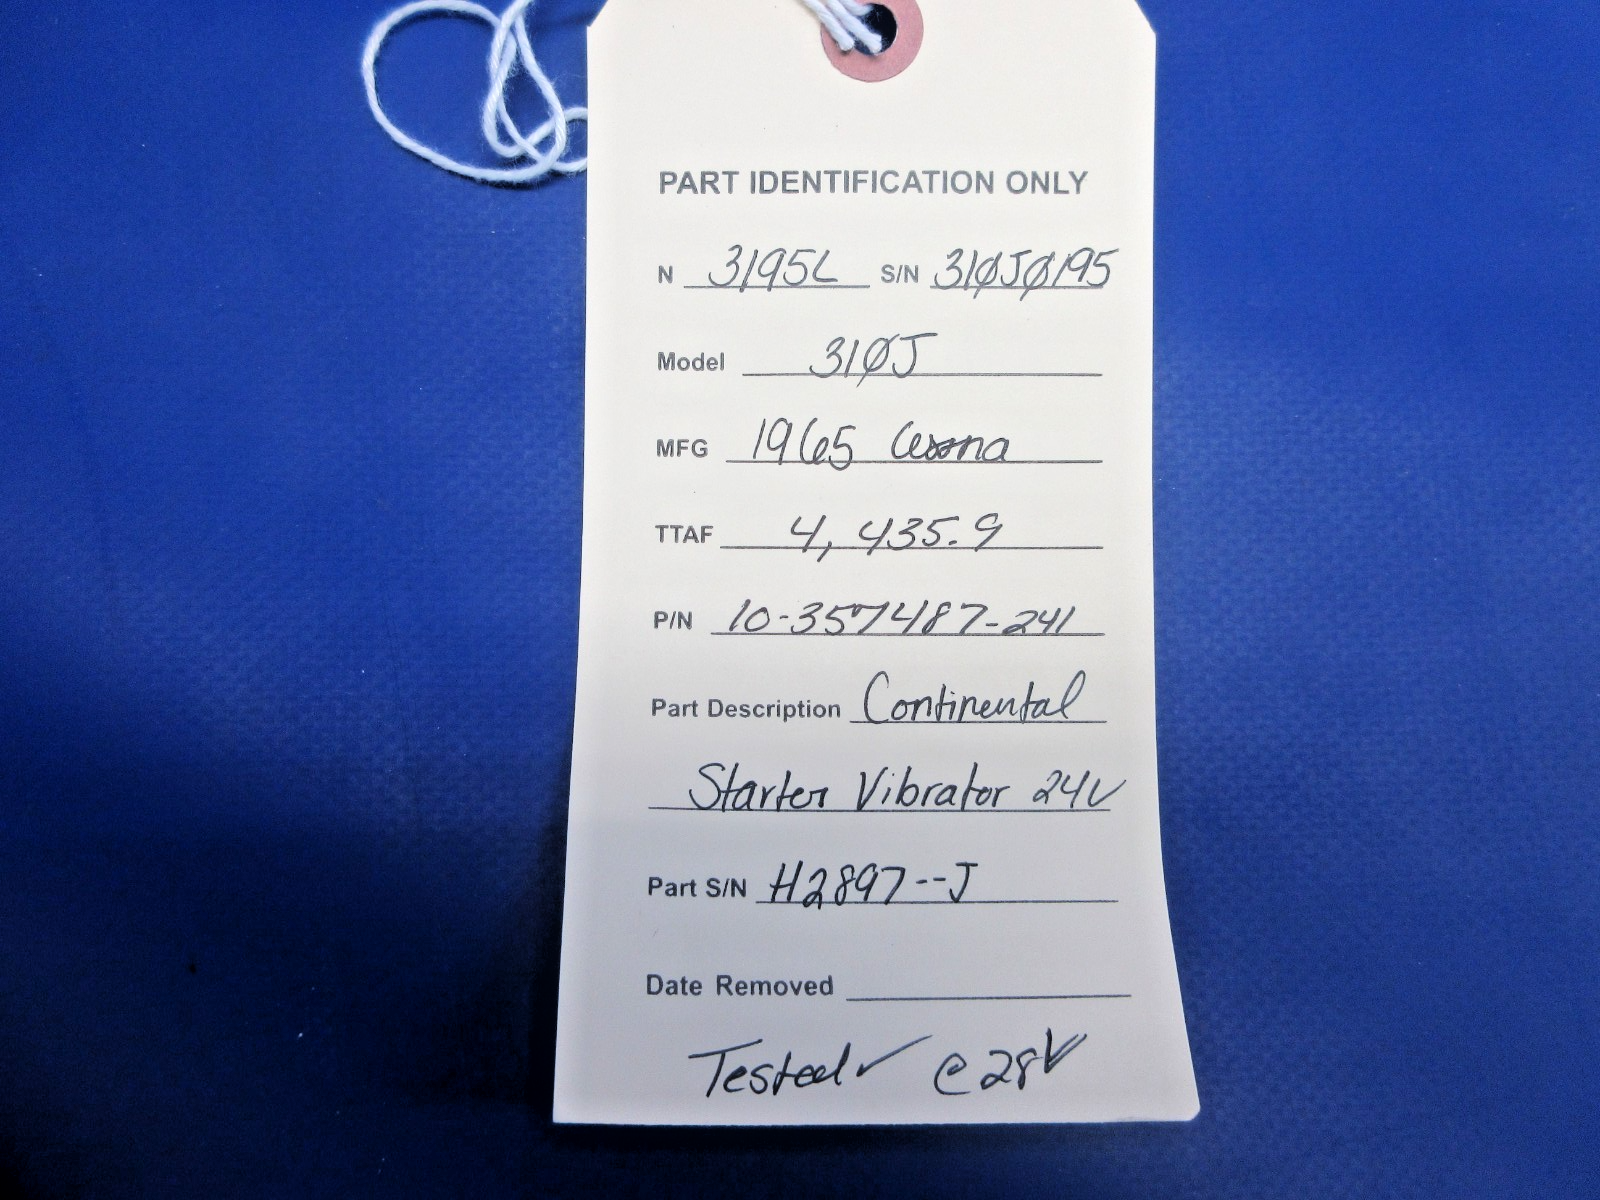 PART IDENTIFICATION ONLY
N 3195L S/N 310J0195
Model 310J
MFG 1965 Cessna
TTAF 4,435.9
P/N 10-357487-241
Part Description Continental
Starter Vibrator 24V
Part S/N H2897--J
Date Removed
Tested✓ @28V